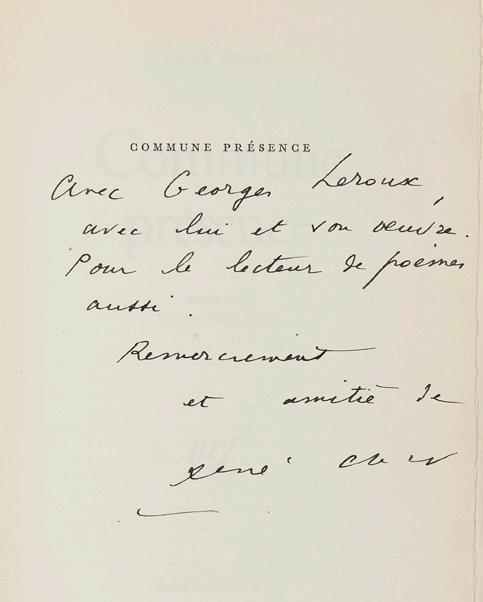 COMMUNE PRÉSENCE
Avec Georges Leroux,
avec lui et son œuvre.
Pour le lecteur de poèmes
aussi.
Remerciement
et amitié de
René Char